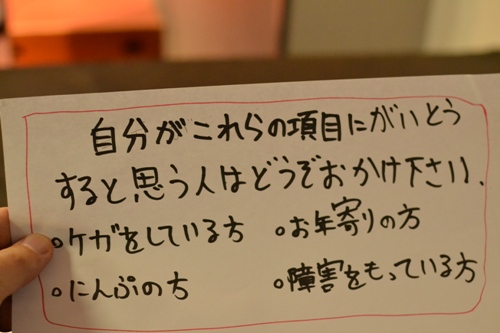 自分がこれらの項目にがいとう
すると思う人はどうぞおかけ下さい、
。ケガをしている方 。お年寄りの方
。にんぷの方 。障害をもっている方